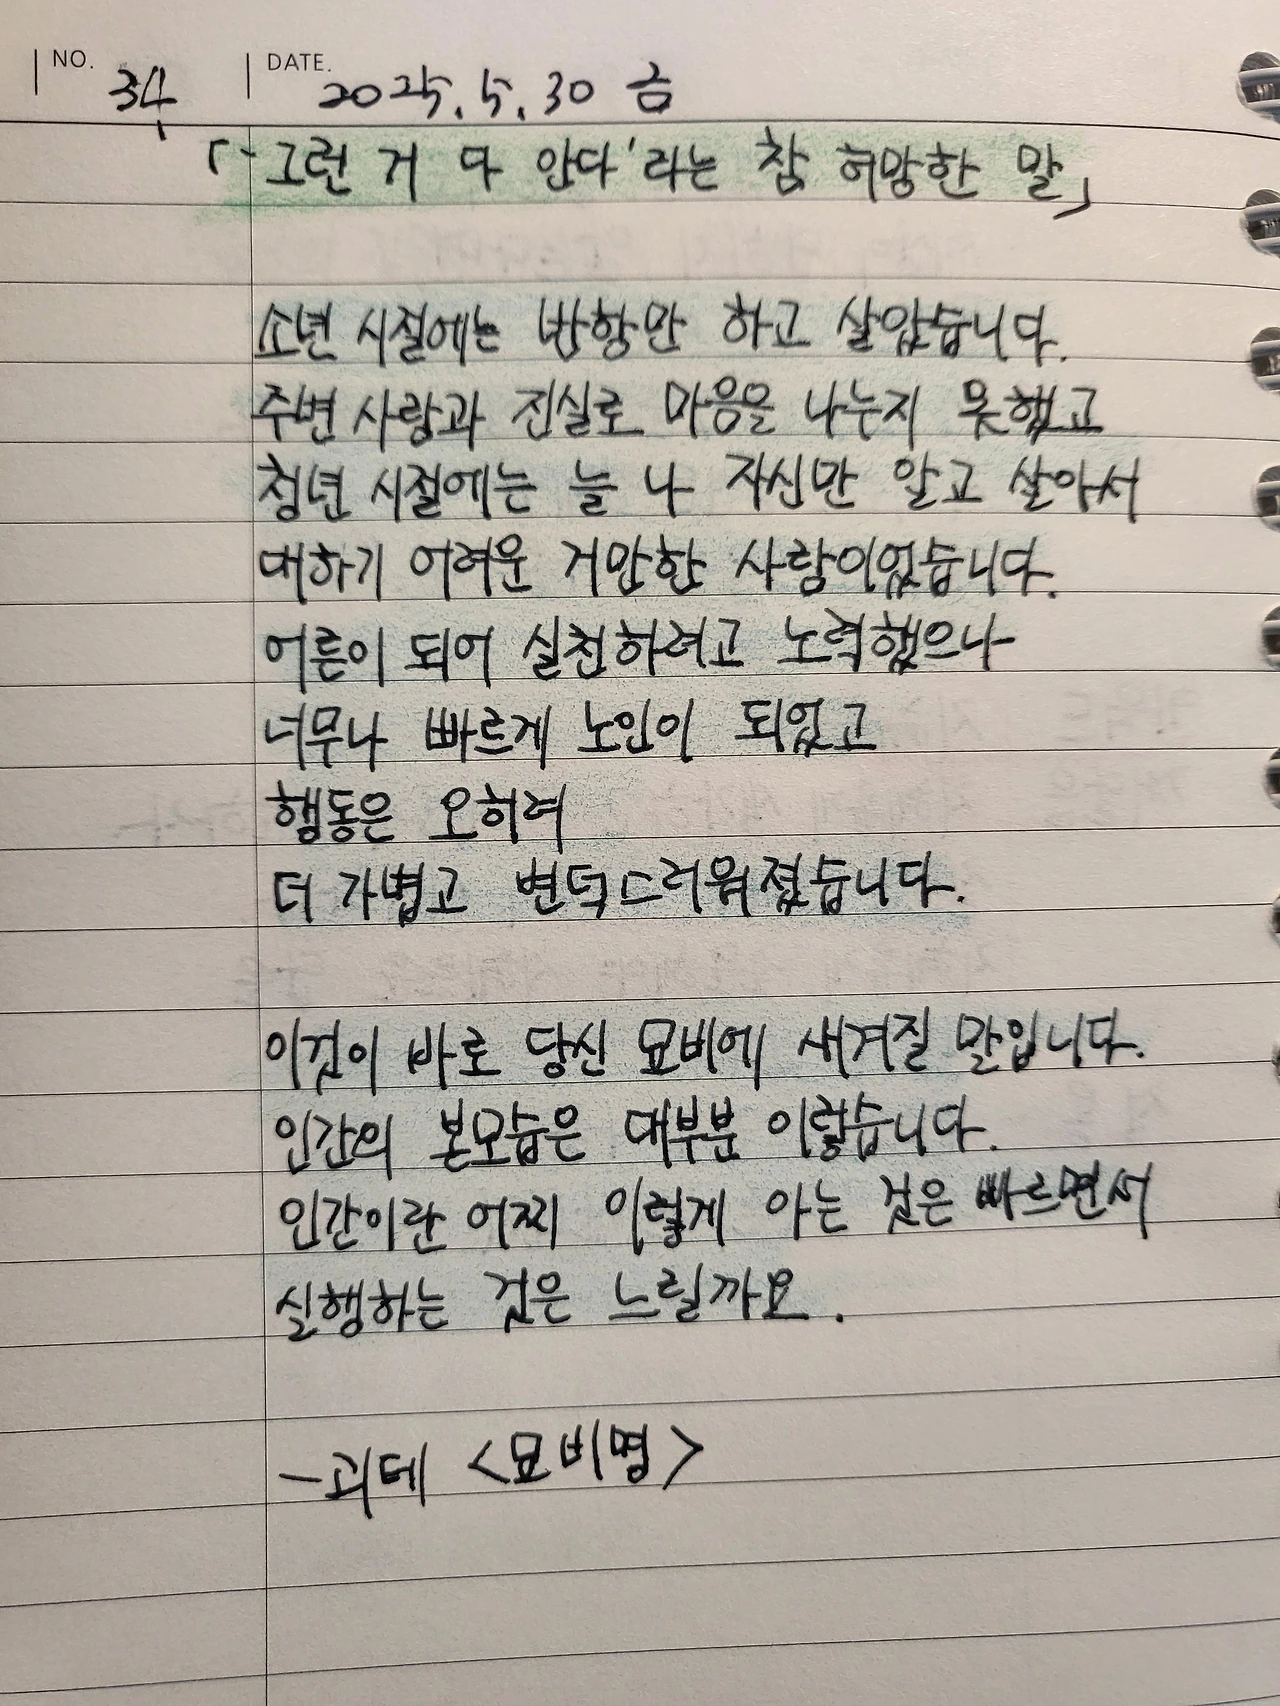 NO. 34 DATE. 2025. 5. 30 금
「'그런 거 다 안다'라는 참 허망한 말」
소년 시절에는 반항만 하고 살았습니다.
주변 사람과 진실로 마음을 나누지 못했고
청년 시절에는 늘 나 자신만 알고 살아서
대하기 어려운 거만한 사람이었습니다.
어른이 되어 실천하려고 노력했으나
너무나 빠르게 노인이 되었고
행동은 오히려
더 가볍고 변덕스러워졌습니다.
이것이 바로 당신 묘비에 새겨질 말입니다.
인간의 본모습은 대부분 이렇습니다.
인간이란 어찌 이렇게 아는 것은 빠르면서
실행하는 것은 느릴까요.
-괴테 <묘비명>